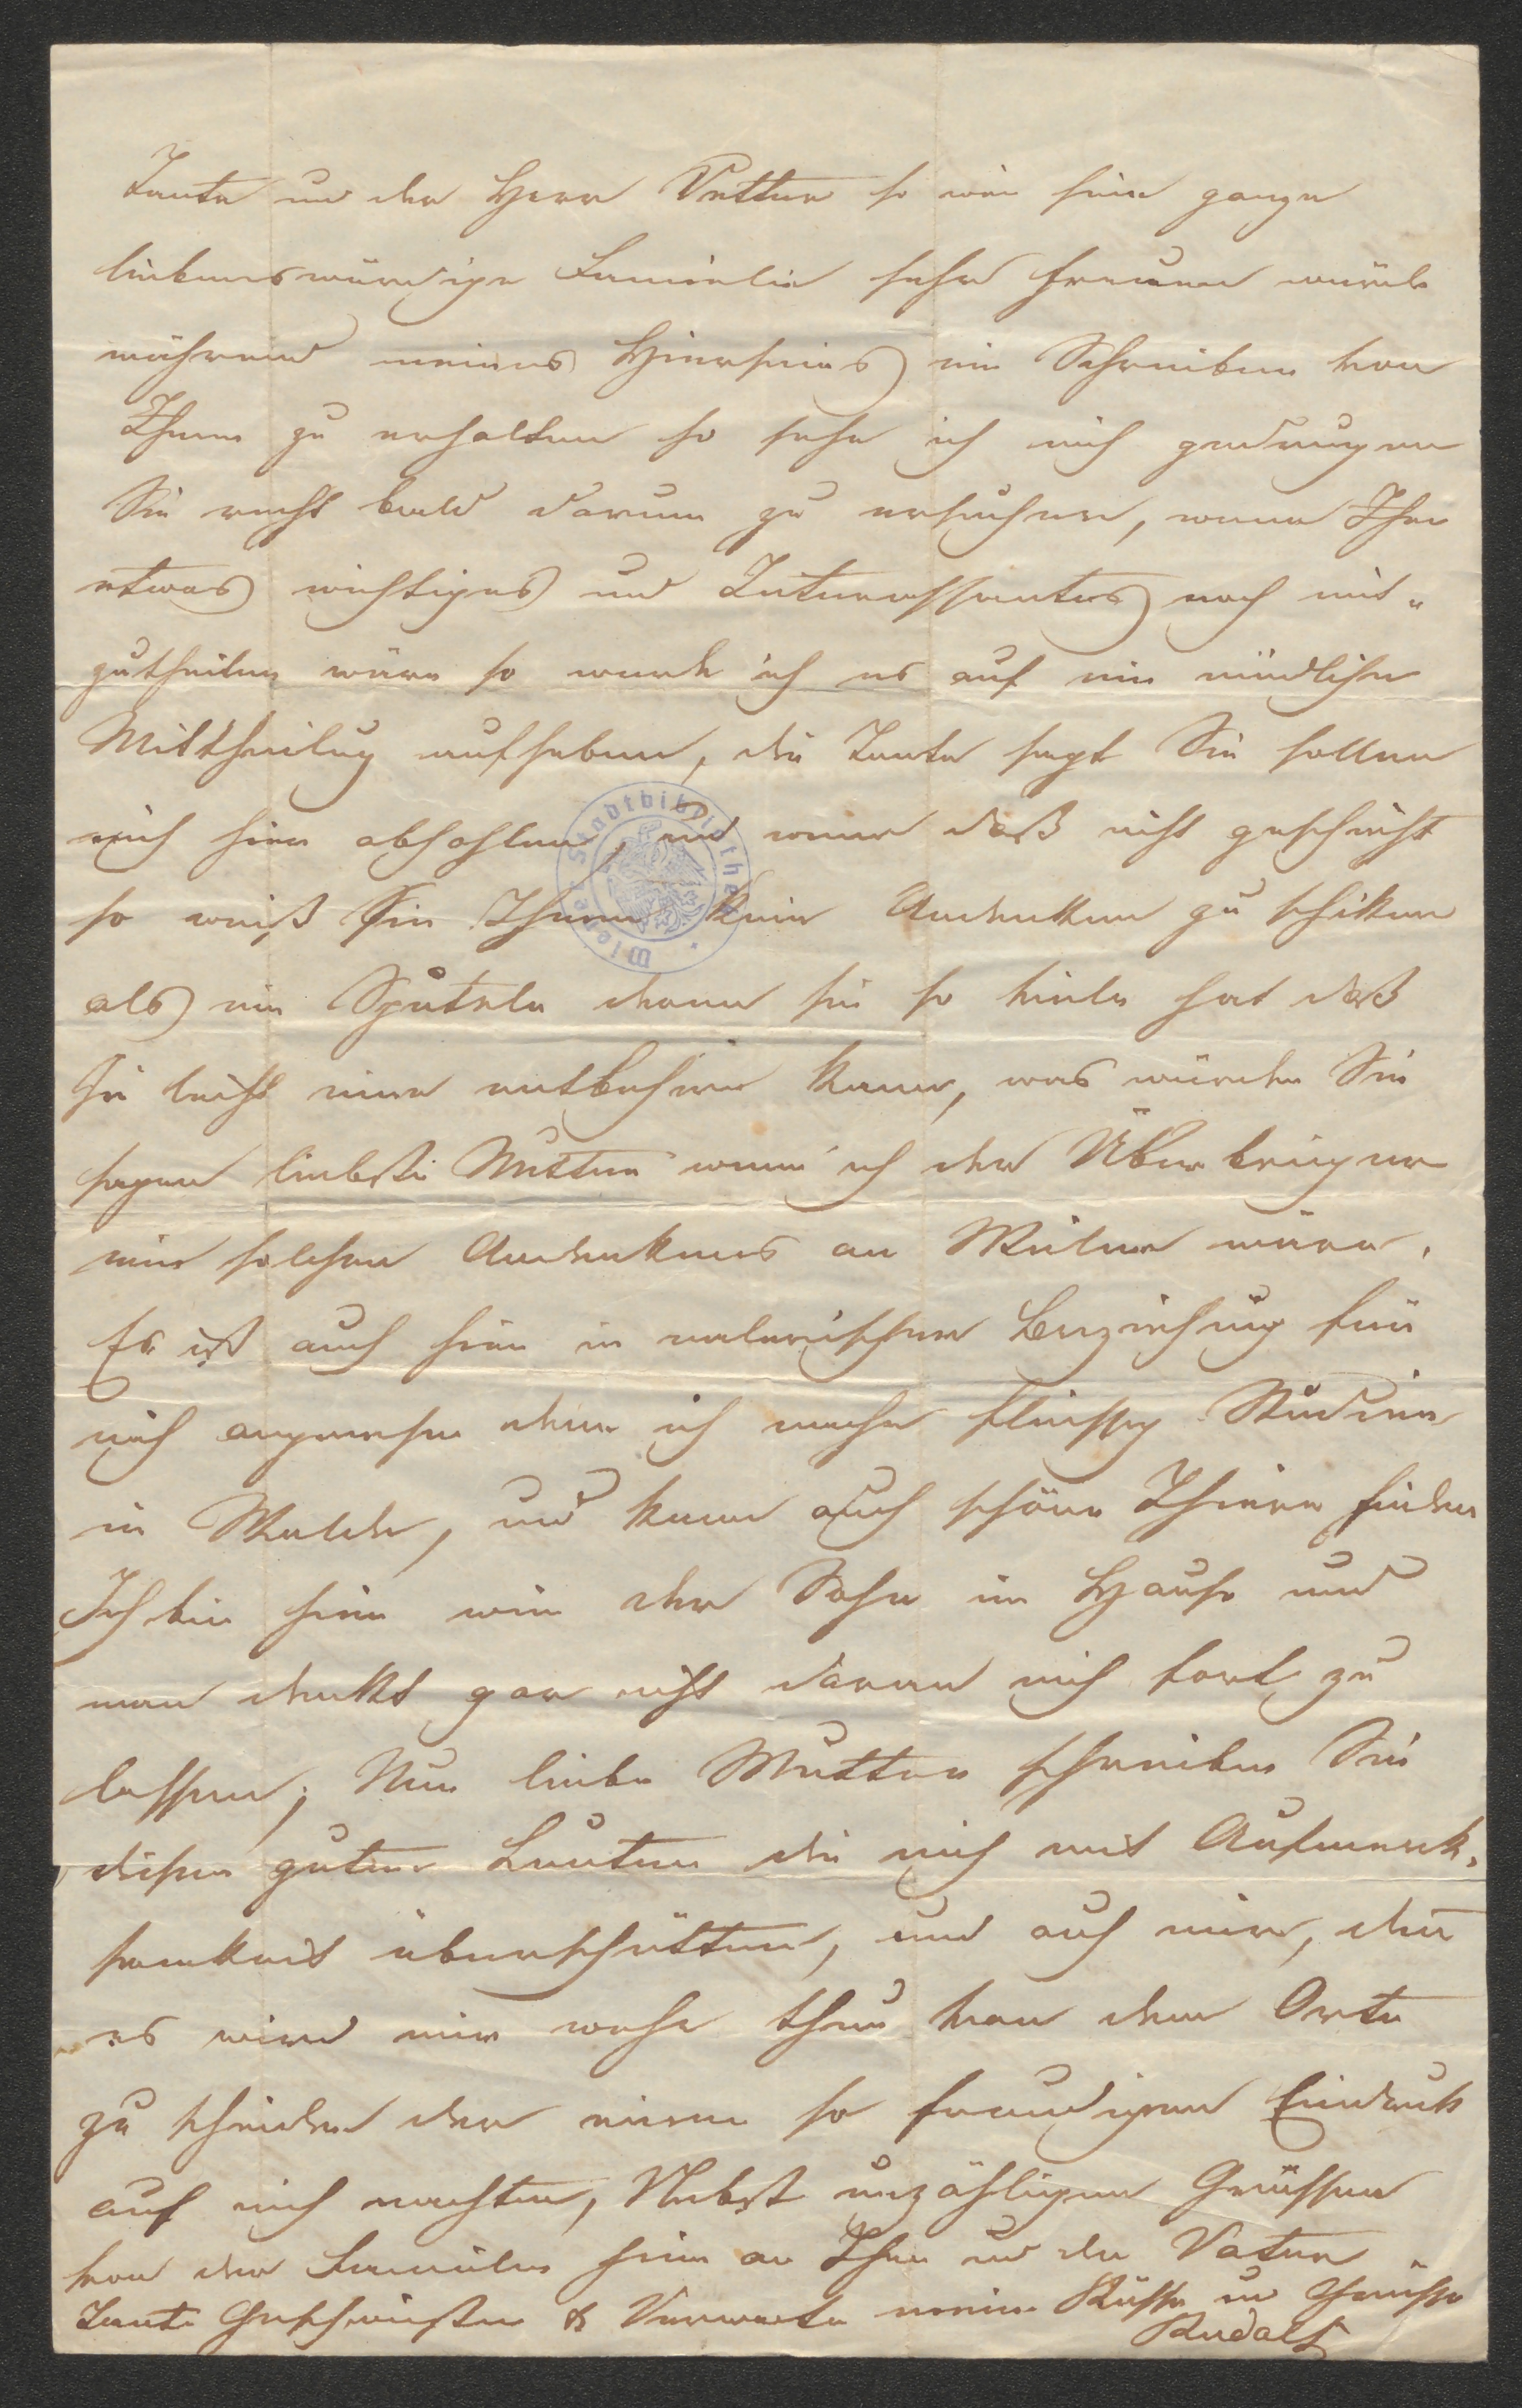 Tante und der Herr Vetter so wie seine ganze
liebenswürdige Familie sehr freuen würde
während meines Hierseins ein Schreiben von
Ihnen zu erhalten so sehe ich mich gedrungen
Sie recht bald darum zu ersuchen, wenn Ihn
etwas wichtiges und Interessantes noch mit„
zutheilen wäre so werde ich es auf eine mündliche
Mittheilug aufheben, die Tante sagt Sie sollen
mich hier abhohlen, und wenn daß nicht geschieht
so weiß Sie Ihnen kein Andenken zu schiken
als ein deren sie so viele hat daß
Sie leicht eine entbehren kann, was würden Sie
sagen liebste Mutter wenn ich der Überbringer
eines solchen Andenkens an wäre.
Es ist auch hier in malerischer Beziehung für
mich angenehm denn ich mache fleissig Studien
im Walde, und kann auch schöne Thiere finden
Ich bin hier wie der Sohn im Hause und
man denkt gar nicht daran mich fort zu
lassen; Nun liebe Mutter schreiben Sie
diesen guten Leuten die mich mit Aufmerk„
samkeit überschütten, und auch mir, den
es wird mir wehe thun von dem Orte
zu scheiden der einen so freudigen Eindruck
auf mich machten, Nebst unzähligen Grüssen
von der Familie hier an Ihnen und den Vater
Tante Geschwister & Verwandte meine Küsse und Grüsse
Rudolf
Wiener Stadtbibliothek